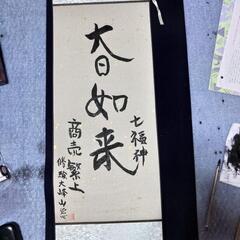 七福神
大日如来
商売繁上
修験大峰山